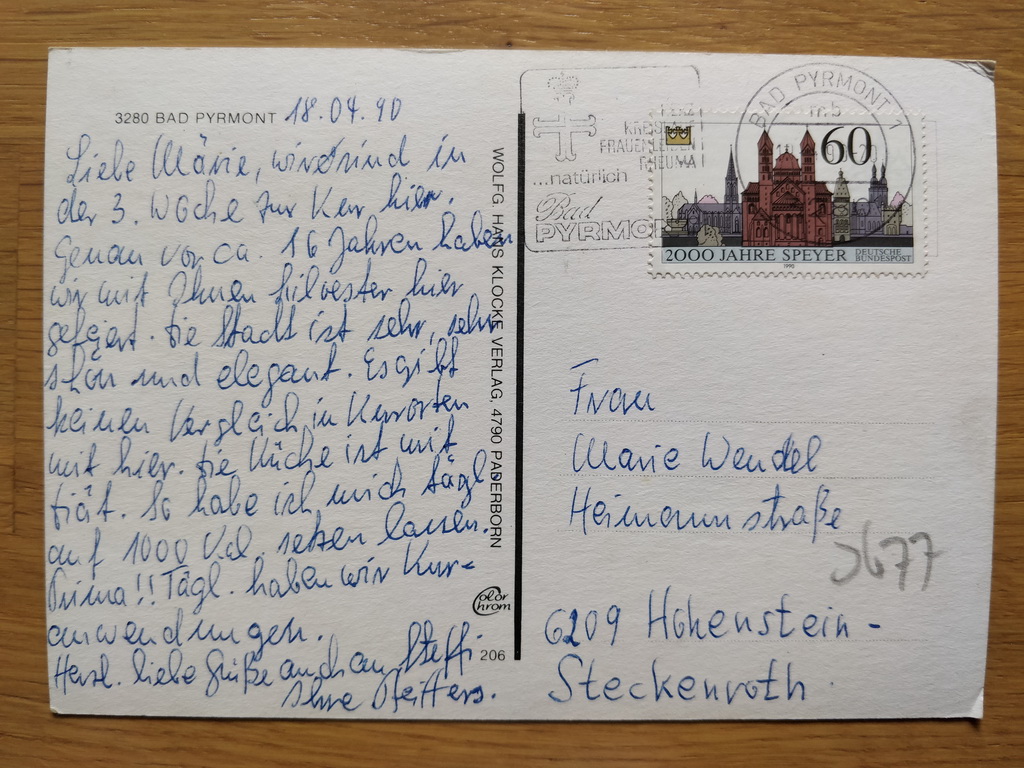 3280 BAD PYRMONT 18.04.90
Liebe Marie, wir sind in
der 3. Woche zur Kur hier.
Genau vor ca. 16 Jahren haben
wir mit Ihnen Silvester hier
gefeiert. Die Stadt ist sehr, sehr
schön und elegant. Es gibt
keinen Vergleich in Kurorten
mit hier. Die Küche ist mit
Diät. So habe ich mich tägl.
auf 1000 Kal. setzen lassen.
Prima!! Tägl. haben wir Kur-
anwendungen.
Herzl. liebe Grüße auch an Steffi
Ihre Pfeiffers.
WOLFG. HANS KLOCKE VERLAG, 4790 PADERBORN
Color
Chrom
206
HERZ
KREISLAUF
FRAUENLEIDEN
RHEUMA
...natürlich
Bad
PYRMO
BAD PYRMONT 1
60
2000 JAHRE SPEYER
DEUTSCHE
BUNDESPOST
1990
Frau
Marie Wendel
Heimannstraße
6209 Hohenstein-
Steckenroth